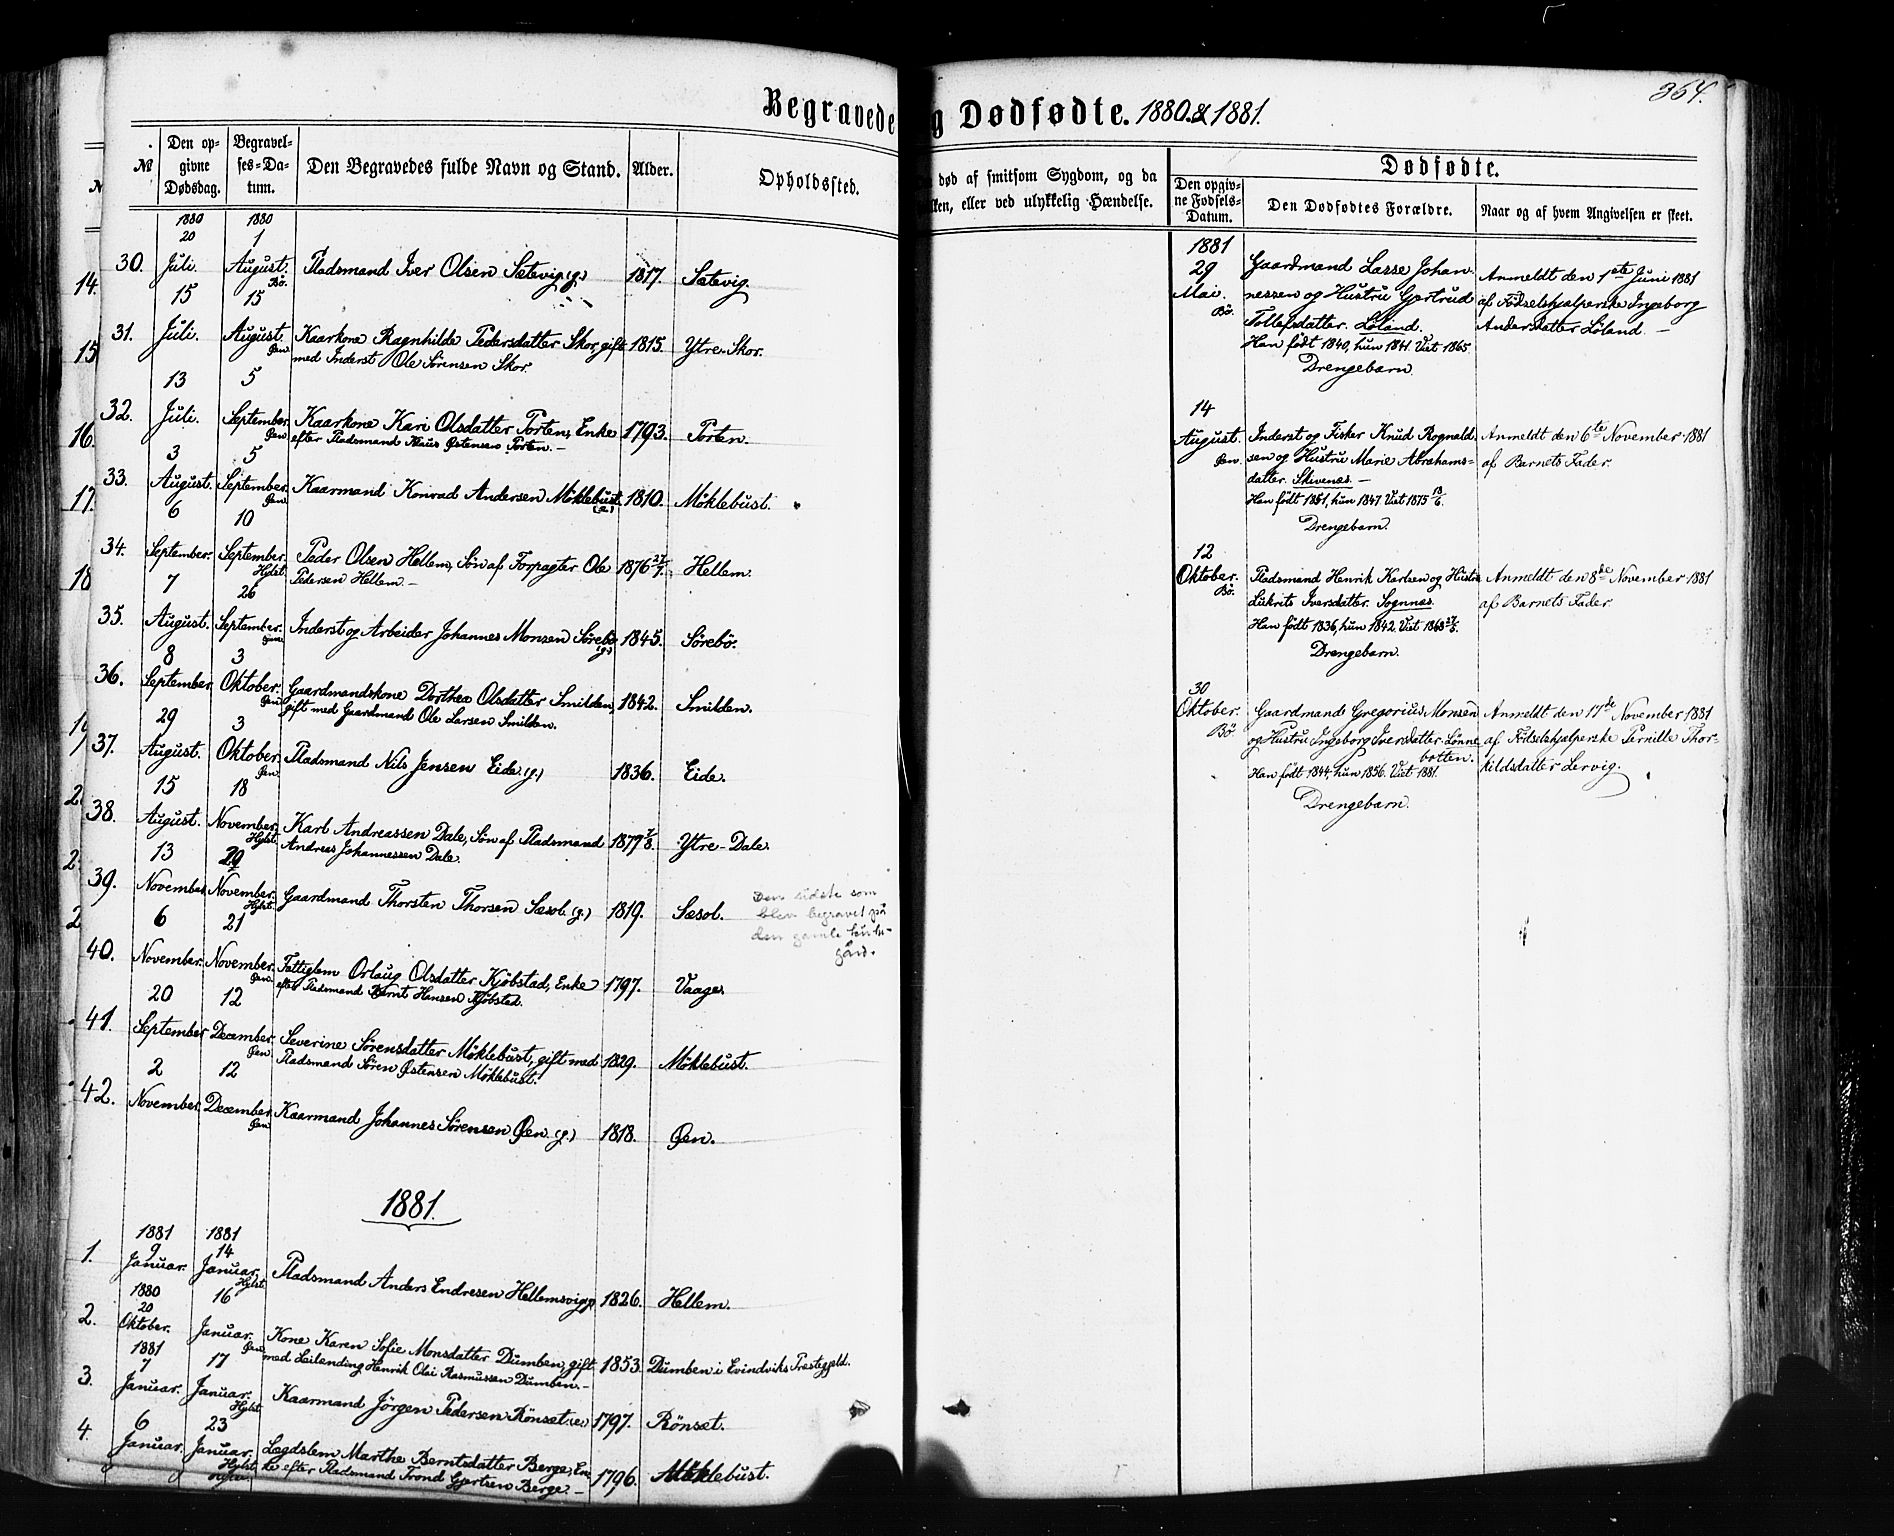 364.
Begravede
g Dødfødte. 1880 & 1881.
№
Den opgivne Dødsdag.
Begravelses-Datum.
Den Begravedes fulde Navn og Stand.
Alder.
Opholdssted.
død af smitsom Sygdom, og da
kken, eller ved ulykkelig Hændelse.
Dødfødte.
Den opgivne Fødsels-Datum.
Den Dødfødtes Forældre.
Naar og af hvem Angivelsen er skeet.
1880 1880
30. 20 Juli. 1 August. Bø. Pladsmand Iver Olsen Sætevig (g.) 1817. Sætevig.
31. 15 Juli. 15 August. Øen Kaarkone Ragnhilde Pedersdatter Skor, gift 1815. Ytre-Skor.
med Inderst Ole Sørensen Skor.
32. 13 Juli. 5 September. Øen Kaarkone Kari Olsdatter Porten, Enke 1793. Porten.
efter Pladsmand Klaus Østensen Porten. –
33. 3 August. 5 September. Øen Kaarmand Konrad Andersen Møklebust 1810. Møklebust.
34. 6 September. 10 September. Hylst. Peder Olsen Hellem, Søn af Forpagter Ole 1876 27/7. Hellem.
Pedersen Hellem. –
35. 7 August. 26 September. Inderst og Arbeider Johannes Monsen Sørebø (g.) 1845. Sørebø.
36. 8 September. 3 Oktober. Øen Gaardmandskone Dorthea Olsdatter Smilden, 1842. Smilden.
gift med Gaardmand Ole Larsen Smilden.
37. 29 August. 3 Oktober. Øen Pladsmand Nils Jensen Eide (g.) 1836. Eide.
38. 15 August. 18 November. Hylst. Karl Andreassen Dale, Søn af Pladsmand 1877 7/8. Ytre-Dale.
Andreas Johannessen Dale.
39. 13 November. 29 November. Hylst. Gaardmand Thorsten Thorsen Sæsol (g.) 1819. Sæsol.
Den sidste som
blev begravet på
den gamle kirke-
gård.
40. 6 November. 21 November. Øen Fattiglem Orlaug Olsdatter Kjøbstad, Enke 1797. Vaage.
efter Pladsmand Bernt Hansen Kjøbstad.
41. 20 September 12 December. Øen Severine Sørensdatter Møklebust, gift med 1829. Møklebust.
Pladsmand Søren Østensen Møklebust.
42. 2 November. 12 December. Øen Kaarmand Johannes Sørensen Øen (g.) 1818. Øen.
1881.
1881 1881
1. 9 Januar. 14 Januar. Hylst. Pladsmand Anders Endresen Hellemsvig 1826. Hellem.
1880
2. 20 Oktober. 16 Januar. Øen Kone Karen Sofie Monsdatter Dumben, gift 1853. Dumben i Evindviks Prestegjeld.
med Leilending Henrik Olai Rasmussen Dumben. –
1881
3. 7 Januar. 17 Januar. Hylst. Kaarmand Jørgen Pedersen Rønset (e.) 1797. Rønset.
4. 6 Januar. 23 Januar. Hylst. Lægdslem Marthe Berntsdatter Berge, En- 1796. Møklebust.
ke efter Pladsmand Trond Gjertsen Berge. –
14.
15
16.
17.
18
19
2.
2.
2
1881
29 Mai. Bø. Gaardmand Lasse Johan-
nessen og Hustru Gertrud
Tollefsdatter. Løland.
Han født 1840, hun 1841. Viet 1865.
Drengebarn.
Anmeldt den 1ste Juni 1881
af Fødselshjælperske Ingeborg
Andersdatter Løland –
14 August. Øen Inderst og Fisker Knud Rognald-
sen og Hustru Marie Abrahams-
datter. Skivenes. –
Han født 1851, hun 1847 Viet 1875 13/6.
Drengebarn.
Anmeldt den 6te November 1881
af Barnets Fader.
12 Oktober. Bø. Pladsmand Henrik Karlsen og Hustru
Lukrits Iversdatter. Sognnæs.
Han født 1836, hun 1842. Viet 1868 27/5.
Drengebarn.
Anmeldt den 8de November 1881
af Barnets Fader.
30 Oktober. Bø. Gaardmand Gregorius Monsen
og Hustru Ingeborg Iversdatter Lønne-
botten.
Han født 1844, hun 1856. Viet 1881.
Drengebarn.
Anmeldt den 17de November 1881
af Fødselshjælperske Pernille Thor-
kildsdatter Lervig.